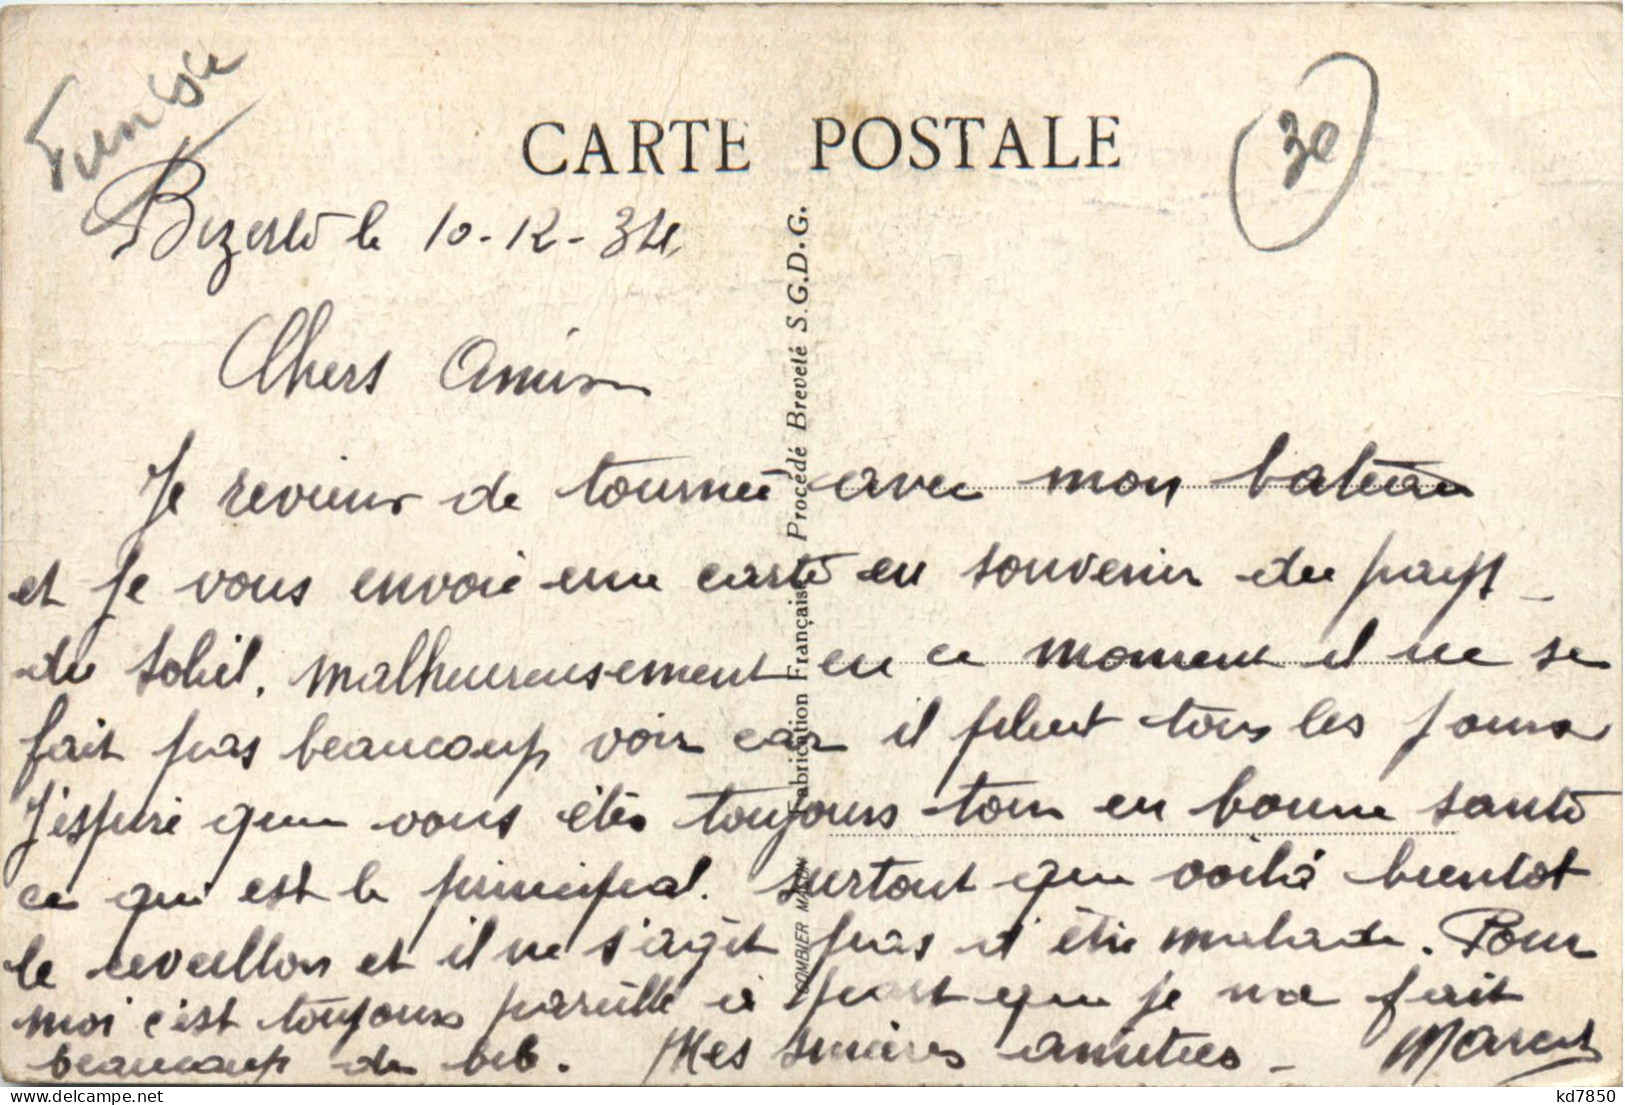 Tunisie
CARTE POSTALE
30
Bizerte le 10-12-34
Chers Amis
Je reviens de tournée avec mon bateau
et je vous envoie une carte en souvenir du pays
du soleil. malheureusement en ce moment il ne se
fait pas beaucoup voir car il pleut tous les jours
J'espère que vous êtes toujours tous en bonne santé
ce qui est le principal. surtout que voilà bientot
le reveillon et il ne s'agit pas d'être malade. Pour
moi c'est toujours pareille à part que je
fait
beaucoup de Mes sincères amitiées - Marcel
COMBIER MACON Fabrication Française Procédé Breveté S.G.D.G.
kd7850